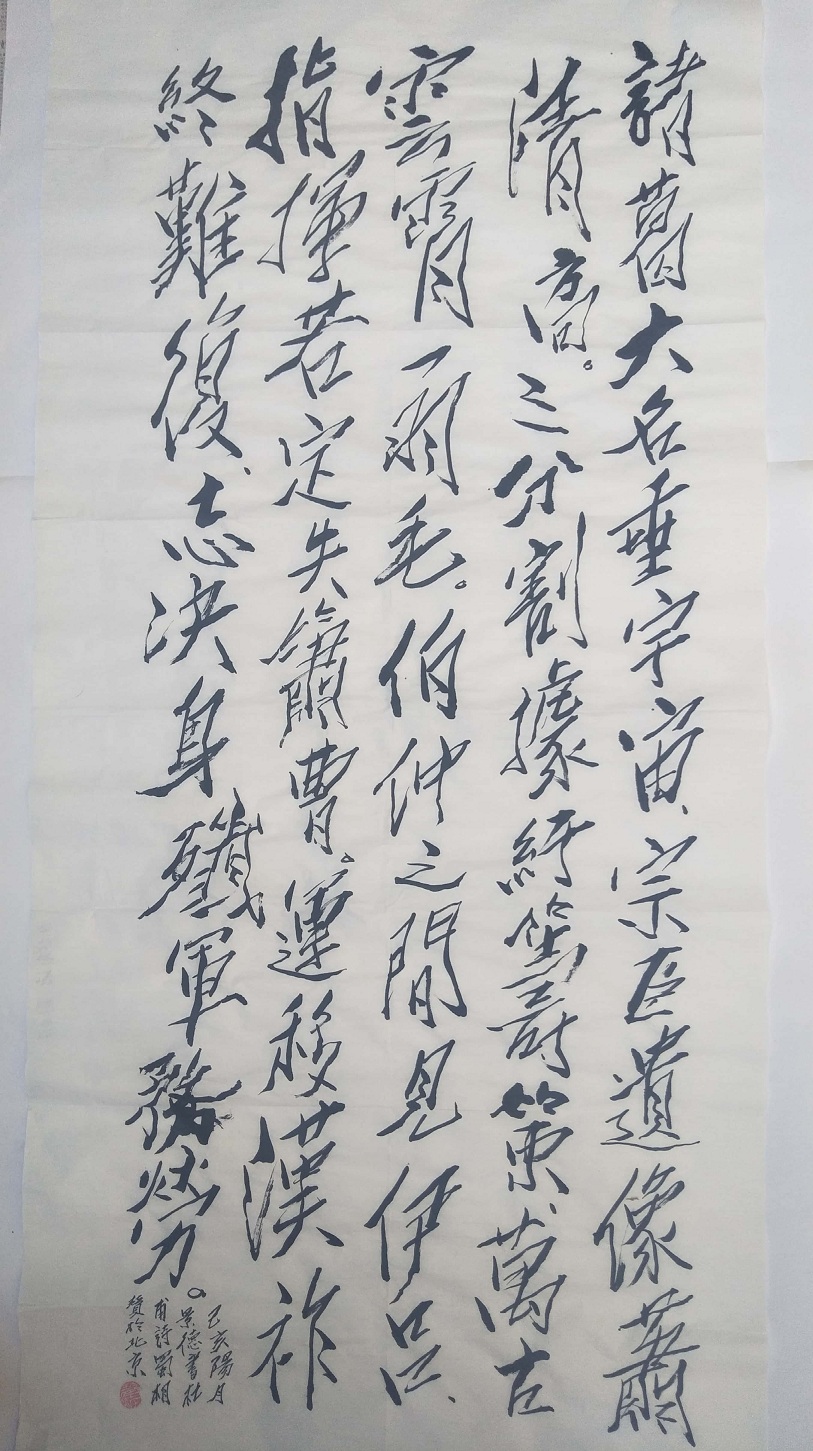 諸葛大名垂宇宙、宗臣遺像蕭
清高。三分割據紆籌策、萬古
雲霄一羽毛。伯仲之間見伊呂、
指揮若定失蕭曹。運移漢祚
終難復、志決身殲軍務勞。
己亥陽月
景德書杜
甫詩蜀相
贊於北京